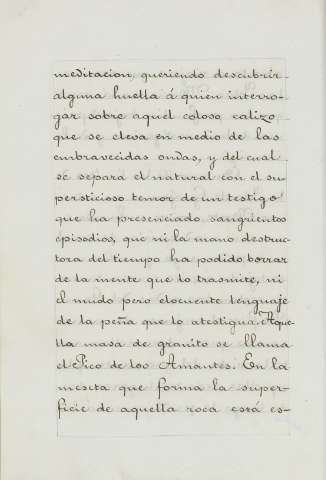 meditacion, queriendo descubrir
alguna huella á quien interro-
gar sobre aquel coloso calizo
que se eleva en medio de las
embravecidas ondas, y del cual
se separa el natural con el su-
persticioso temor de un testigo
que ha presenciado sangrientos
episodios, que ni la mano destruc-
tora del tiempo ha podido borrar
de la mente que lo trasmite, ni
el mudo pero elocuente lenguaje
de la peña que lo atestigua. Aque-
lla masa de granito se llama
el Pico de los Amantes. En la
meseta que forma la super-
ficie de aquella roca está es-